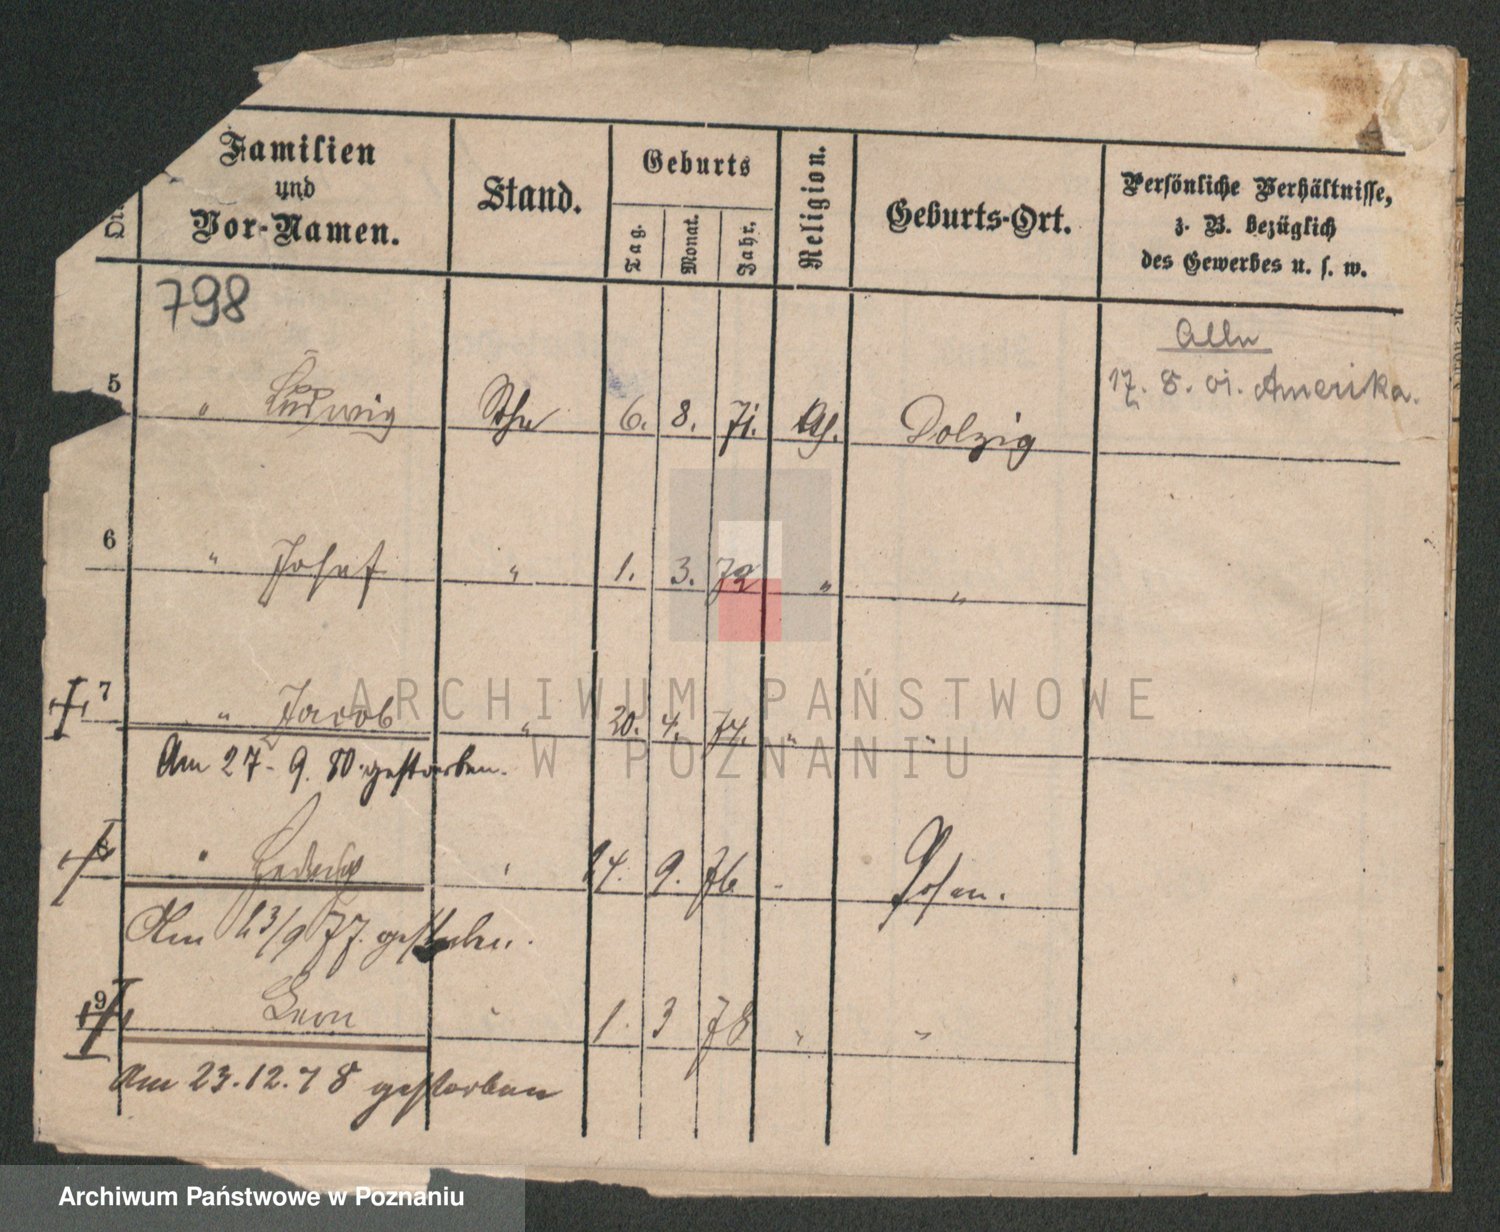 Familien
und
Vor-Namen.
Stand.
Geburts
Tag.
Monat.
Jahr.
Religion.
Geburts-Ort.
Persönliche Verhältnisse,
z. B. bezüglich
des Gewerbes u. s. w.
798
17. 8. 01. Amerika.
5 " Ludwig 6. 8. 71. Dolzig
6 " Josef " 1. 3. 72 " "
7 " Jacob " 20. 4. 74. " "
Am 27. 9. 80. gestorben.
8 " Hedwig " 24. 9. 76 " Posen.
Am 23/9 77. gestorben.
9 Leon " 1. 3 78 " "
Am 23.12.78 gestorben
ARCHIWUM PAŃSTWOWE
W POZNANIU
Archiwum Państwowe w Poznaniu